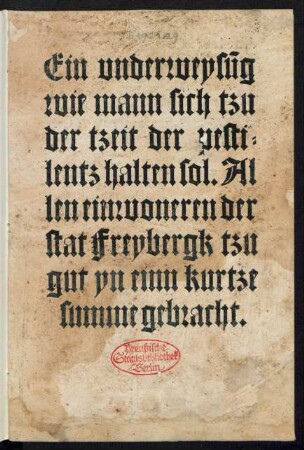 Ein underweysūg
wie mann sich tzu
der tzeit der pesti-
lentz halten sol. Al
len einwoneren der
stat Freybergk tzu
gut yn einn kurtze
summe gebracht.
Preußische
Staatsbibliothek
Berlin